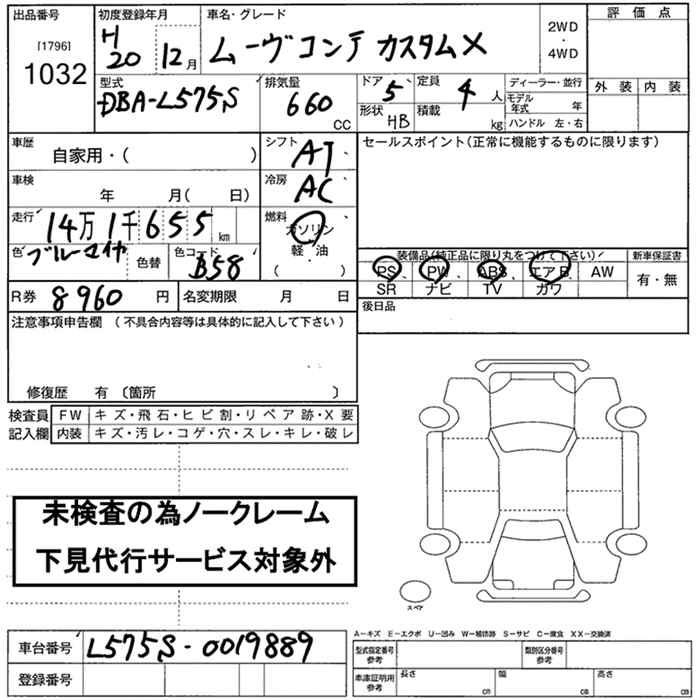 出品番号 初度登録年月 車名・グレード 評価点
[1796] H 2WD
1032 20 12月 ムーヴコンテ カスタムX ・
4WD
型式 排気量 ドア 5 定員 4人 ディーラー・並行 外装 内装
DBA-L575S 660 CC 形状 HB 積載 kg モデル年式 年
ハンドル 左・右
車歴 シフト セールスポイント(正常に機能するものに限ります)
自家用・( ) AT
車検 冷房
年 月( 日) AC
走行 14万1千655km 燃料 ガソリン
色 色替 色コード ・
B58 軽・油
( )
装備品(純正品に限り丸をつけて下さい) 新車保証書
PS、PW、ABS、エアB AW 有・無
SR ナビ TV カワ
R券 8960円 名変期限 月 日 後日品
注意事項申告欄 (不具合内容等は具体的に記入して下さい)
修復歴 有 〔箇所 〕
検査員 FW キズ・飛石・ヒビ割・リペア跡・X要
記入欄 内装 キズ・汚レ・コゲ・穴・スレ・キレ・破レ
未検査の為ノークレーム
下見代行サービス対象外
スペア
車台番号 L575S-0019889
登録番号
A－キズ E－エクボ U－凹み W－補修跡 S－サビ C－腐食 XX－交換済
型式指定番号 参考 類別区分番号 参考
車庫証明用 参考 長さ cm 幅 cm 高さ cm